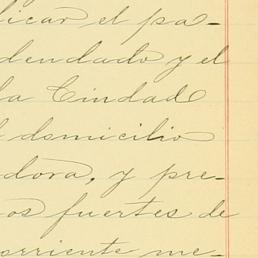 licar el pa-
dendado y el
la Ciudad
domicilio
dora, y pre-
os fuertes de
orriente me-